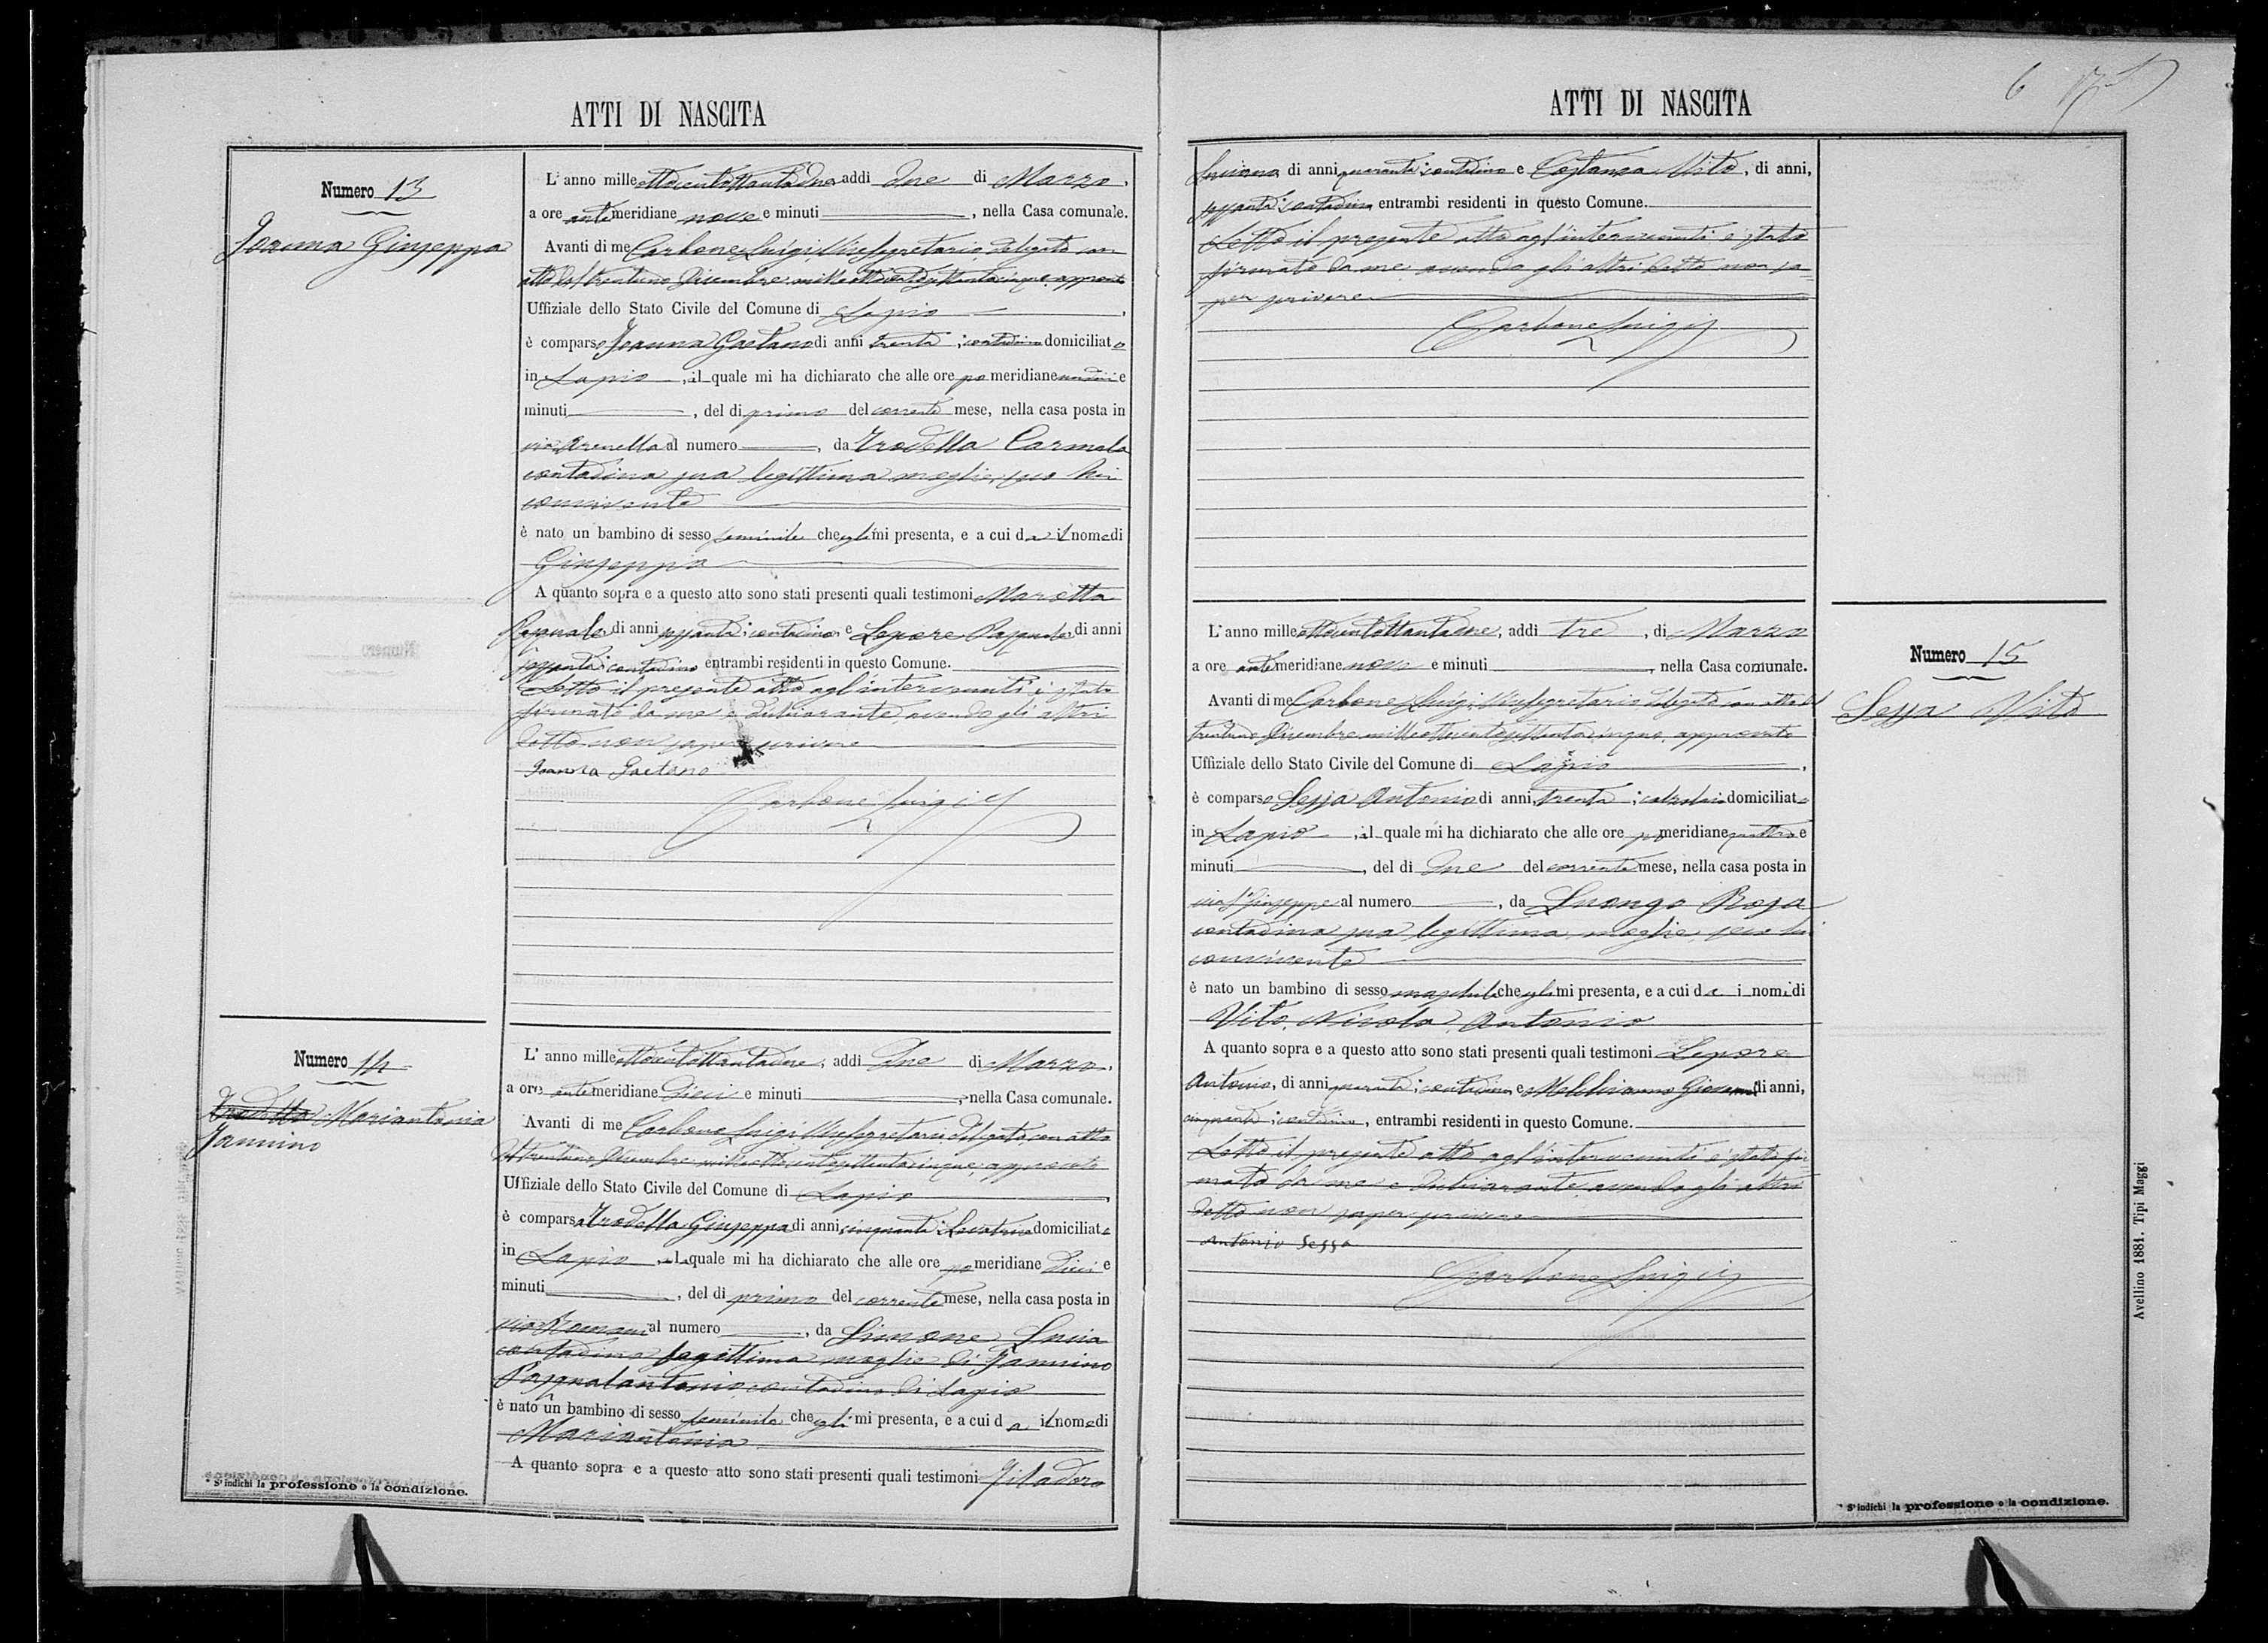 ATTI DI NASCITA
Numero 13
Joanna Giuseppa
L'anno milleottocentottantadue, addì due di Marzo,
a ore antimeridiane nove e minuti, nella Casa comunale.
Avanti di me Carbone Luigi, Vicesegretario, delegato con
atto del trentuno Dicembre milleottocentosettantacinque, approvato
Uffiziale dello Stato Civile del Comune di Lapio,
è comparso Joanna Gaetano di anni trenta, contadino domiciliato
in Lapio, il quale mi ha dichiarato che alle ore pomeridiane undici e
minuti, del dì primo del corrente mese, nella casa posta in
via Arenella al numero, da Trodella Carmela
contadina sua legittima moglie, seco lui
convivente
è nato un bambino di sesso feminile che egli mi presenta, e a cui dà il nome di
Giuseppa
A quanto sopra e a questo atto sono stati presenti quali testimoni Marotta
Pasquale, di anni sessanta, contadino e Lepore Pasquale, di anni
sessanta, contadino entrambi residenti in questo Comune.
Letto il presente atto agl'intervenuti è stato
firmato da me e dichiarante avendo gli altri
detto non sapere scrivere
Joanna Gaetano
Carbone Luigi
Numero 14
Trodella Mariantonia
Jannino
L'anno milleottocentottantadue, addì due di Marzo,
a ore antimeridiane dieci e minuti, nella Casa comunale.
Avanti di me Carbone Luigi Vicesegretario delegato con atto
del trentuno Dicembre milleottocentosettantacinque, approvato
Uffiziale dello Stato Civile del Comune di Lapio,
è comparsa Trodella Giuseppa di anni cinquanta, Levatrice domiciliata
in Lapio, la quale mi ha dichiarato che alle ore pomeridiane dieci e
minuti, del dì primo del corrente mese, nella casa posta in
via al numero, da Simone Lucia
contadina legittima moglie di Jannino
Pasqualantonio contadino di Lapio
è nato un bambino di sesso feminile che egli mi presenta, e a cui dà il nome di
Mariantonia
A quanto sopra e a questo atto sono stati presenti quali testimoni
* S'indichi la professione o la condizione.
6
ATTI DI NASCITA
Luciano, di anni quaranta, contadino e Costanza Vito, di anni,
sessanta, contadino entrambi residenti in questo Comune.
Letto il presente atto agl'intervenuti è stato
firmato da me avendo gli altri detto non sa-
per scrivere
Carbone Luigi
Numero 15
Sessa Vito
L'anno milleottocentottantadue, addì tre, di Marzo
a ore antimeridiane nove e minuti, nella Casa comunale.
Avanti di me Carbone Luigi, Vicesegretario delegato con atto del
trentuno Dicembre milleottocentosettantacinque, approvato
Uffiziale dello Stato Civile del Comune di Lapio,
è comparso Sessa Antonio di anni, trenta, calzolaio domiciliato
in Lapio, il quale mi ha dichiarato che alle ore pomeridiane quattro e
minuti, del dì due del corrente mese, nella casa posta in
via S. Giuseppe al numero, da Luongo Rosa
contadina sua legittima moglie, seco lui
convivente
è nato un bambino di sesso maschile che egli mi presenta, e a cui dà i nomi di
Vito, Nicola, Antonio
A quanto sopra e a questo atto sono stati presenti quali testimoni Lepore
Antonio, di anni quaranta, contadino e Melchionno Giovanni di anni,
cinquanta, contadino, entrambi residenti in questo Comune.
Letto il presente atto agl'intervenuti è stato fir-
mato da me e dichiarante avendo gli altri
detto non saper scrivere
Antonio Sessa
Carbone Luigi
* S'indichi la professione o la condizione.
Avellino 1881. Tipi Maggi